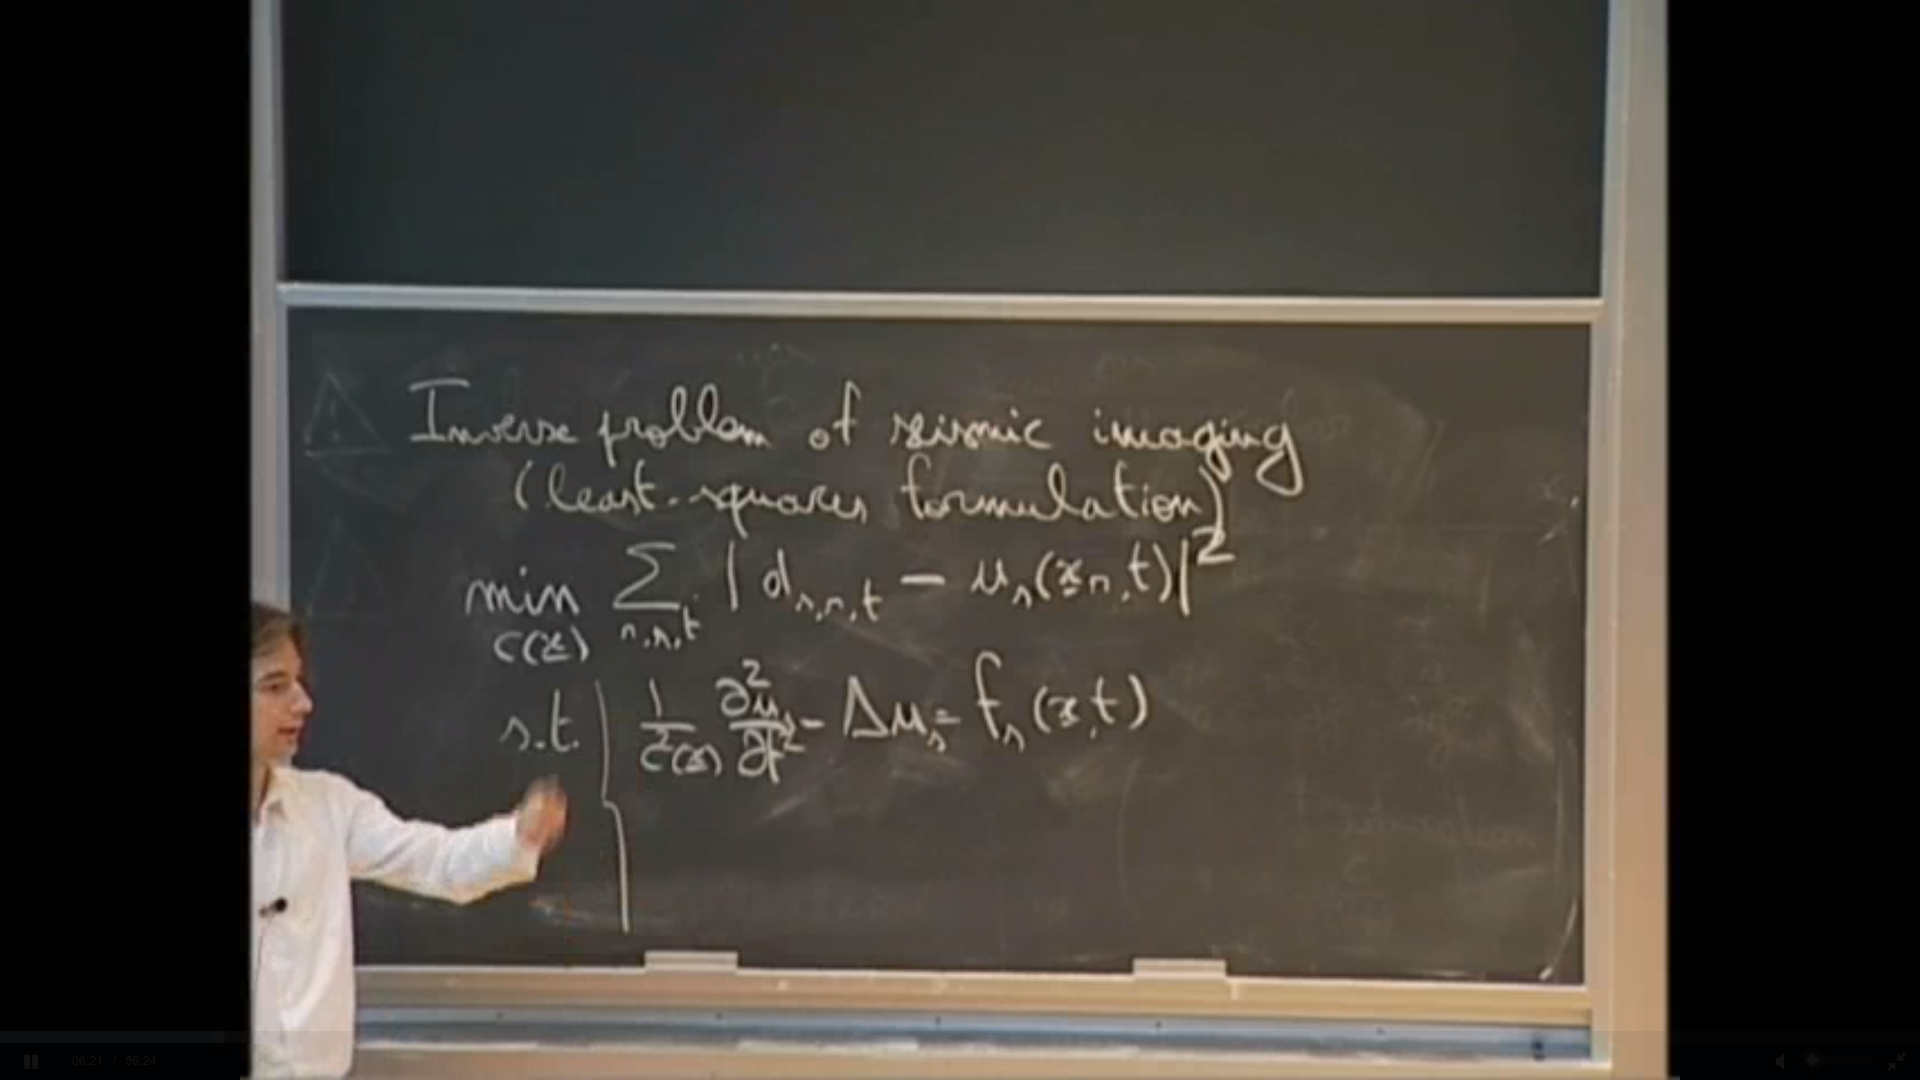 Inverse problem of seismic imaging
(least-squares formulation)
min c(x) Σ r,s,t | d s,r,t − u s (x r, t) |²
s.t. { 1/c²(x) ∂²u s/∂t² − Δu s = f s (x,t)
06:21 / 56:24